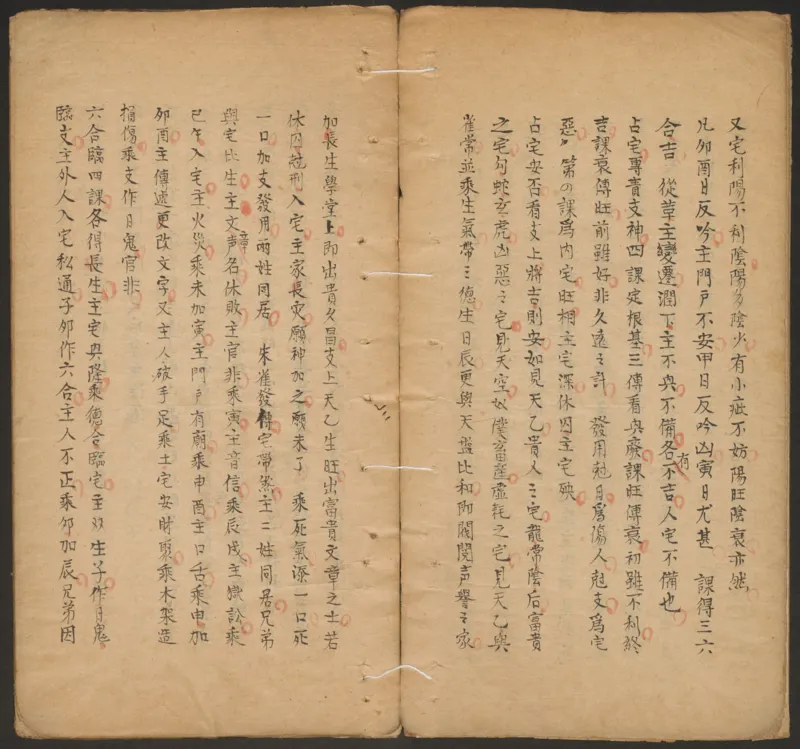 又宅利陽不利陰陽多陰火有小疵不妨陽旺陰衰亦然
凡夘酉日反吟主門戶不安甲日反吟凶寅日尤甚　課得三六
合吉　從革主變遷潤下主不興不備各有不吉人宅不備也
占宅專責支神四課定根基三傳看興廢課旺傳衰初雖不利終
吉課衰傳旺前雖好非久遠之計　發用尅日為傷人尅支為宅
惡　第四課為內宅旺相主宅深休囚主宅殃
占宅安否看支上將吉則安如見天乙貴人之宅龍常陰后富貴
之宅勾蛇玄虎凶惡之宅見天空奴僕畜產虛耗之宅見天乙與
雀常並乘生氣帶之德生日辰更與天盤比和即閥閱声譽之家
加長生學堂上即出貴夕冒支上天乙生旺出富貴文章之士若
休囚尅刑入宅主家長灾願神加之願未了　乘死氣添一口死
一口加支發用兩姓同居　朱雀發傳宅帶煞主二姓同居兄弟
與宅比生主文章声名休敗主官非乘寅主音信乘辰戌主獄訟乘
巳午入宅主火災乘未加寅主門戶有廟乘申酉主口舌乘申加
夘酉主傳遞更改文字又主人破手足乘土宅安財聚乘木架造
損傷乘支作日鬼官非
六合臨四課各得長生主宅興隆乘德合臨宅主双生子作日鬼
臨支主外人入宅私通子夘作六合主人不正乘夘加辰兄弟因